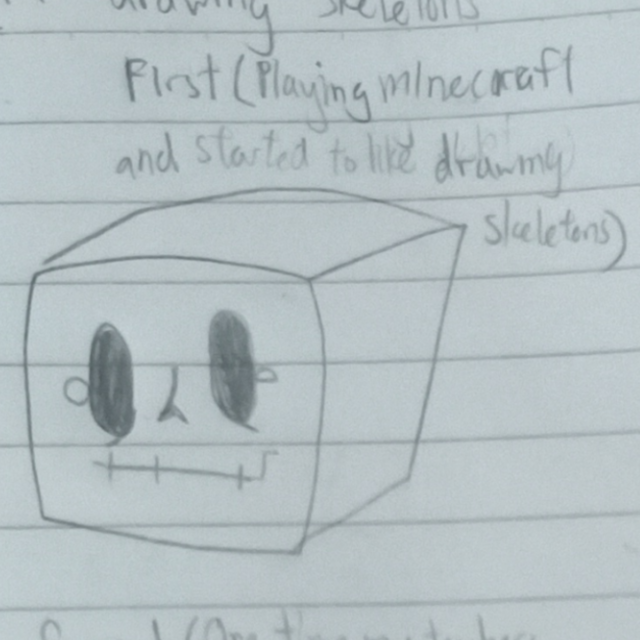 drawing skeletons
First (Playing minecraft
and started to like drawing
skeletons)